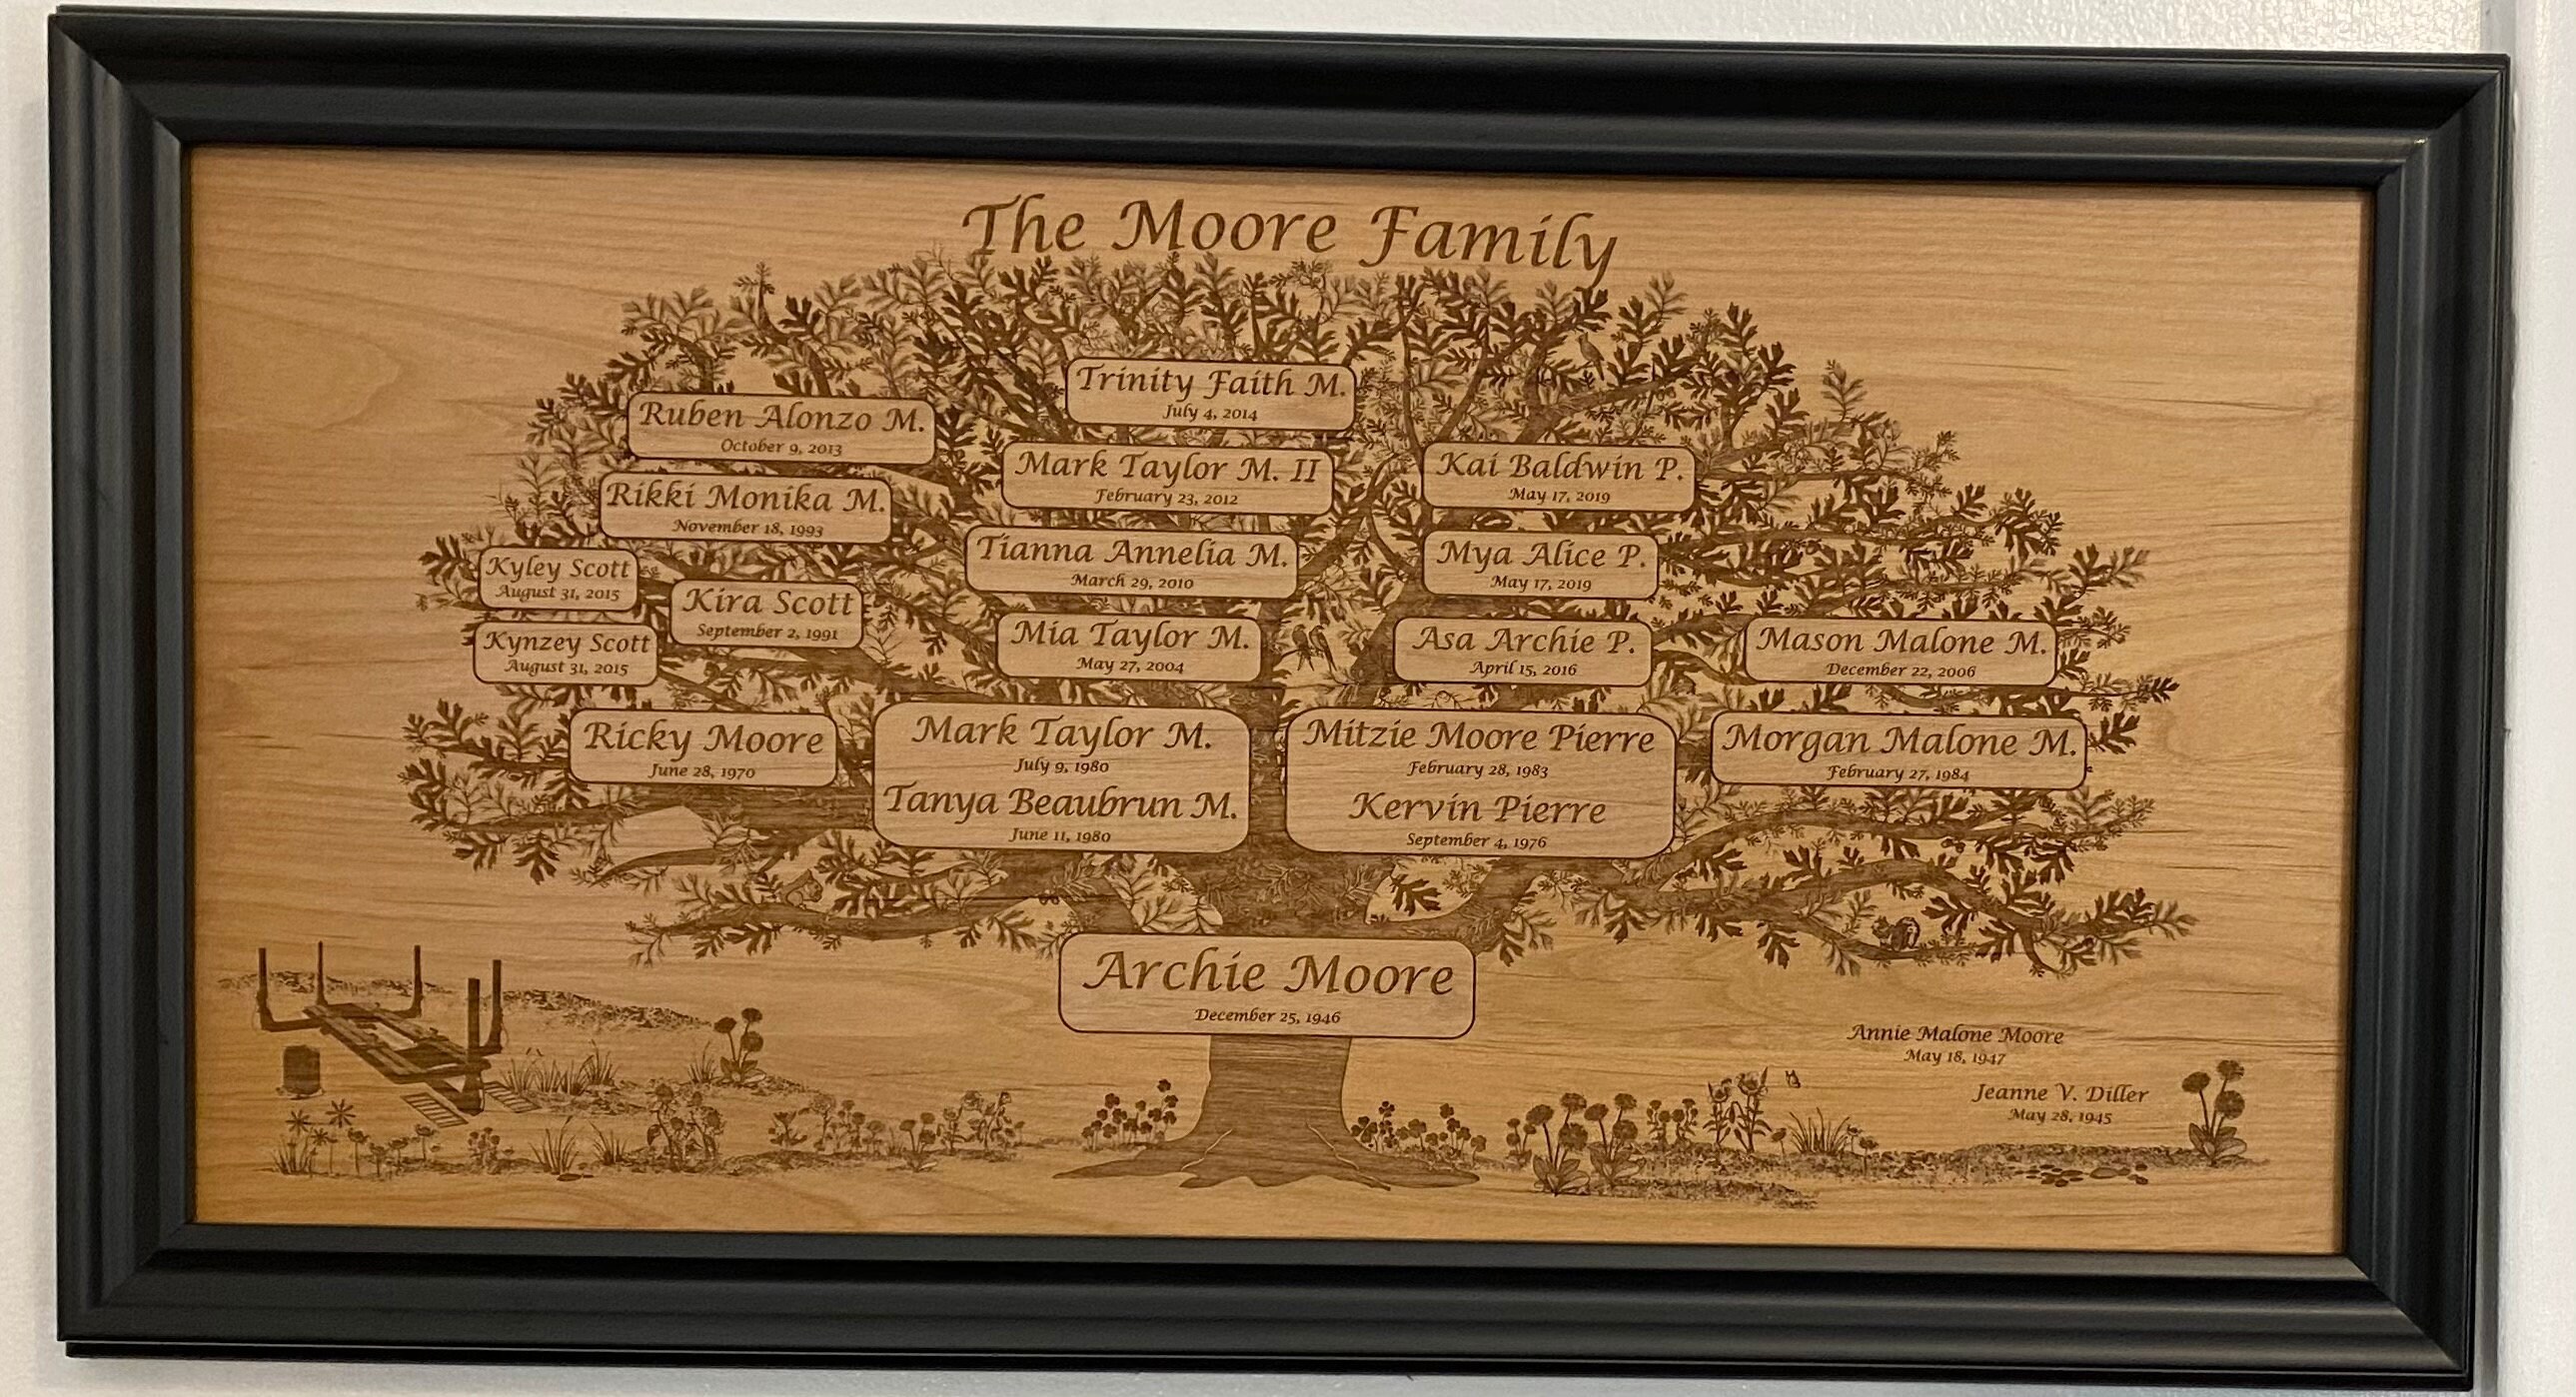 The Moore Family
Trinity Faith M.
July 4, 2014
Ruben Alonzo M.
October 9, 2013
Mark Taylor M. II
February 23, 2012
Kai Baldwin P.
May 17, 2019
Rikki Monika M.
November 18, 1993
Tianna Annelia M.
March 29, 2010
Mya Alice P.
May 17, 2019
Kyley Scott
August 31, 2015
Kira Scott
September 2, 1991
Mia Taylor M.
May 27, 2004
Asa Archie P.
April 15, 2016
Mason Malone M.
December 22, 2006
Kynzey Scott
August 31, 2015
Ricky Moore
June 28, 1970
Mark Taylor M.
July 9, 1980
Tanya Beaubrun M.
June 11, 1980
Mitzie Moore Pierre
February 28, 1983
Kervin Pierre
September 4, 1976
Morgan Malone M.
February 27, 1984
Archie Moore
December 25, 1946
Annie Malone Moore
May 18, 1947
Jeanne V. Diller
May 28, 1945